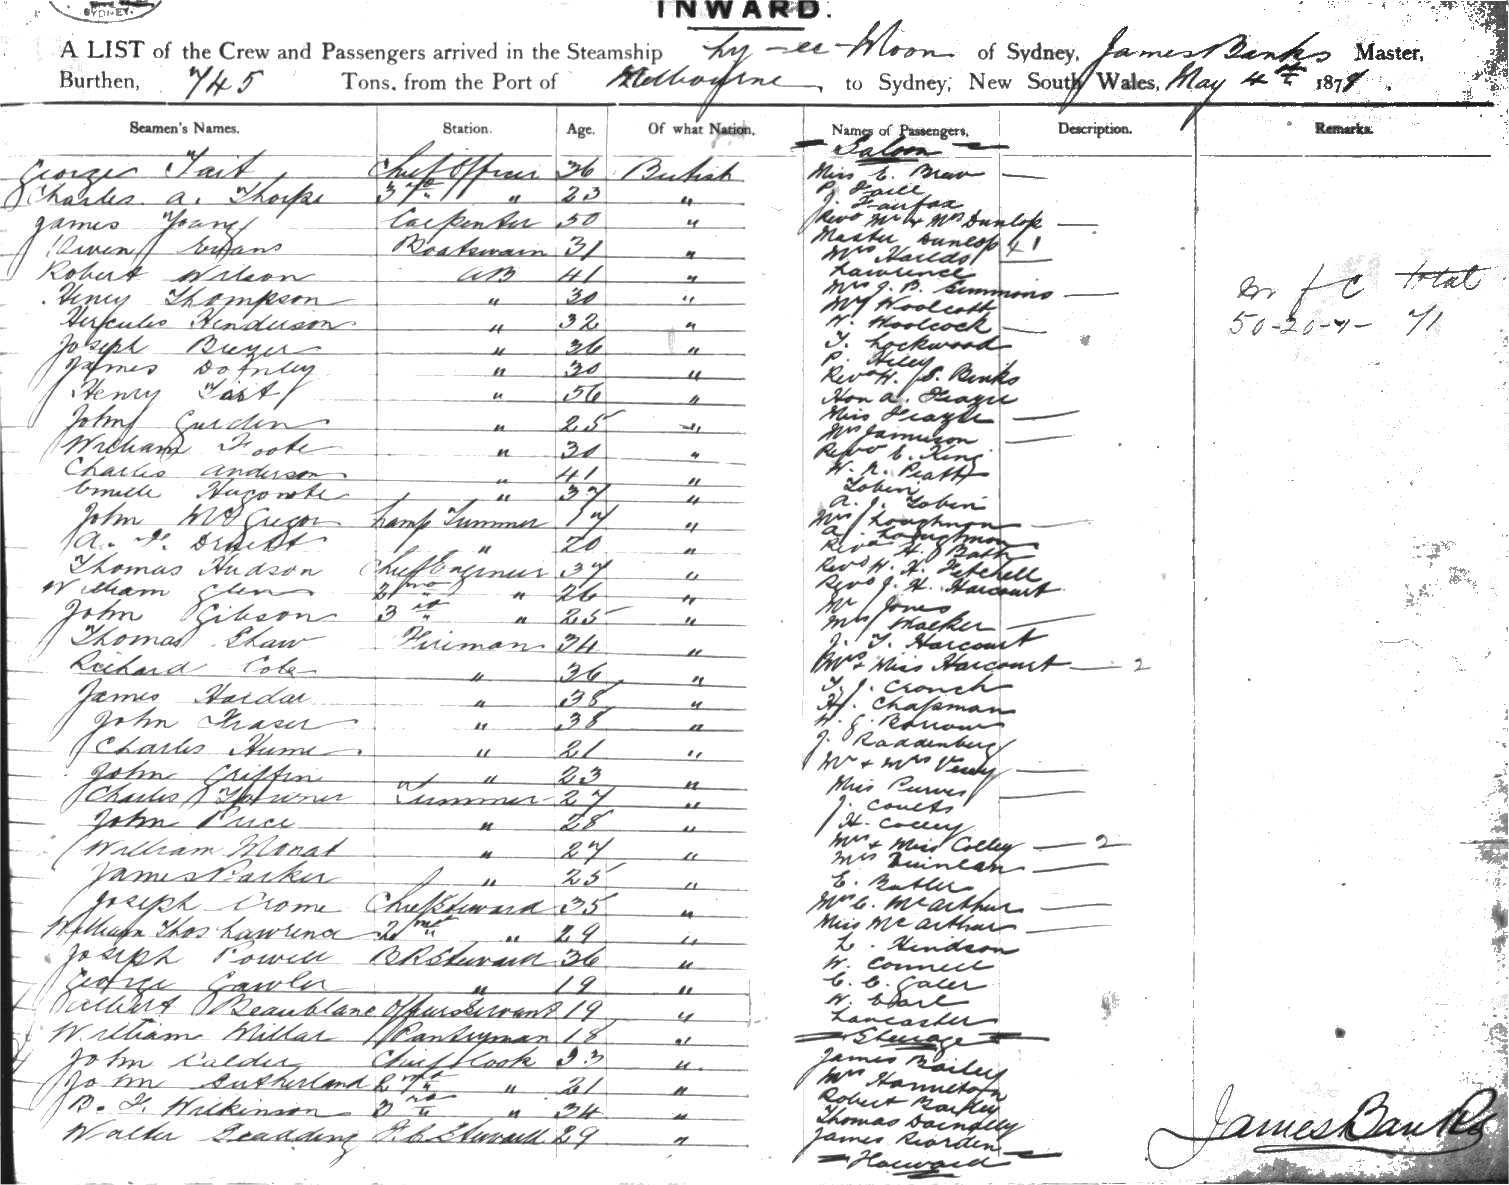 SYDNEY.
INWARD.
A LIST of the Crew and Passengers arrived in the Steamship Hy-ee-Moon of Sydney, James Banks Master,
Burthen, 745 Tons, from the Port of Melbourne to Sydney, New South Wales, May 4th 1878.
Seamen's Names. Station. Age. Of what Nation. Names of Passengers. Description. Remarks.
Saloon
George Tait Chief Officer 36 British Miss E. Brew
Charles A. Thorpe 3rd " 23 " P. Faill
J. Fairfax
James Young Carpenter 50 " Revd Mr & Mrs Dunlop
Owen Evans Boatswain 31 " Master Dunlop 41
Mrs Fields
Robert Wilson AB 41 " Lawrence
Henry Thompson " 30 " Mrs J. B. Simmons
Mr Woolcott
m f C total
Hercules Henderson " 32 " W. Woolcock
50-20-7- 71
Joseph Breyer " 36 " T. Lockwood
James Downey " 30 " P. Hiley
Revd W. S. Binks
Henry Tait " 56 " Hon A. Frazer
John Gurden " 25 " Miss Frazer
Mrs Jamieson
William Foote " 30 " Revd E. King
Charles Anderson " 41 " W. R. Peatt
Emille Hugonote " 37 " Tobin
A. J. Tobin
John McGregor Lamp Trimmer 17 " Mrs Loughman
A. Loughman
A. F. " 20 " Revd H. Bath
Thomas Hudson Chief Engineer 37 " Revd W. H. Fitchett
William Glen 2nd " 26 " Revd J. H. Harcourt
John Gibson 3rd " 25 " Mr Jones
Mrs Walker
Thomas Shaw Fireman 34 " J. T. Harcourt
Richard Cole " 36 " Mrs & Miss Harcourt 2
James Hardae " 38 " T. J. Crouch
H. Chapman
John Fraser " 38 " W. G. Barrow
Charles Hume " 21 " J. Raddenberg
John Griffin " 23 " Mr & Mrs Verey
Charles Towner Trimmer 27 " Miss Purves
J. Coutts
John Price " 28 " H. Colley
William Monat " 27 " Mrs & Miss Colley 2
Mrs Quinlan
James Parker " 25 " E. Butler
Joseph Crome Chief Steward 35 " Mrs C. McArthur
William Thos Lawrence 2nd " 29 " Miss McArthur
L. Hindson
Joseph Powell B R Steward 36 " W. Connell
George Gawler " 19 " C. E. Galer
Albert Beaublanc Officers Servant 19 " W. Earl
Lancaster
William Millar Pantryman 18 " Steerage
John Calder Chief Cook 33 " James Bailey
John Sutherland 2nd " 21 " Mrs Hanneton
Robert Barkley
B. F. Wilkinson 3rd " 34 " Thomas Donnelly
Walter Gladding F.C. Steward 29 " James Riorden
Forward
James Banks